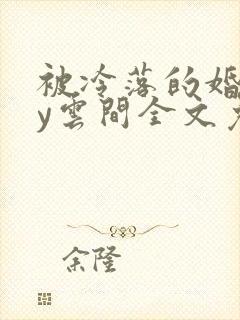 被冷落的婚
y雲間全文
余隆